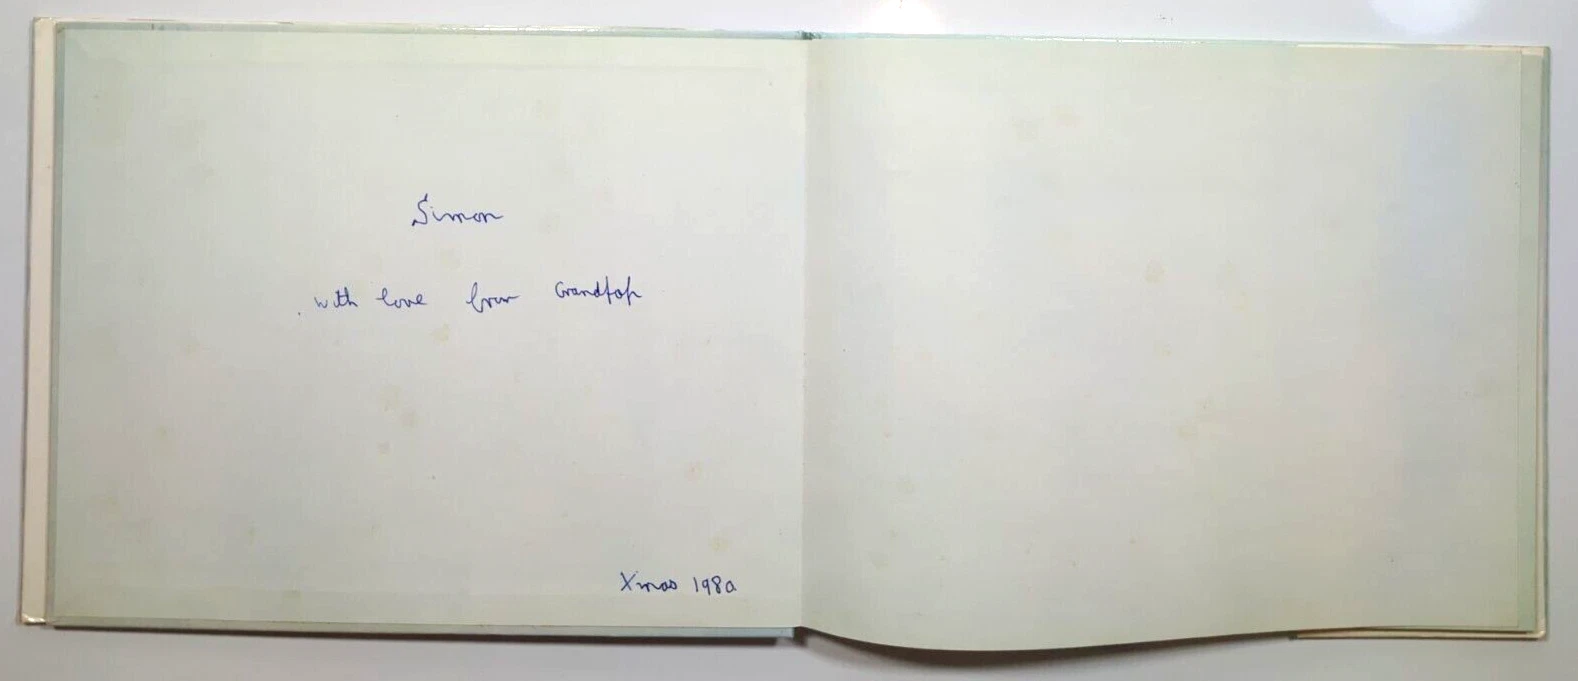 Simon
with love from Grandpop
Xmas 1980